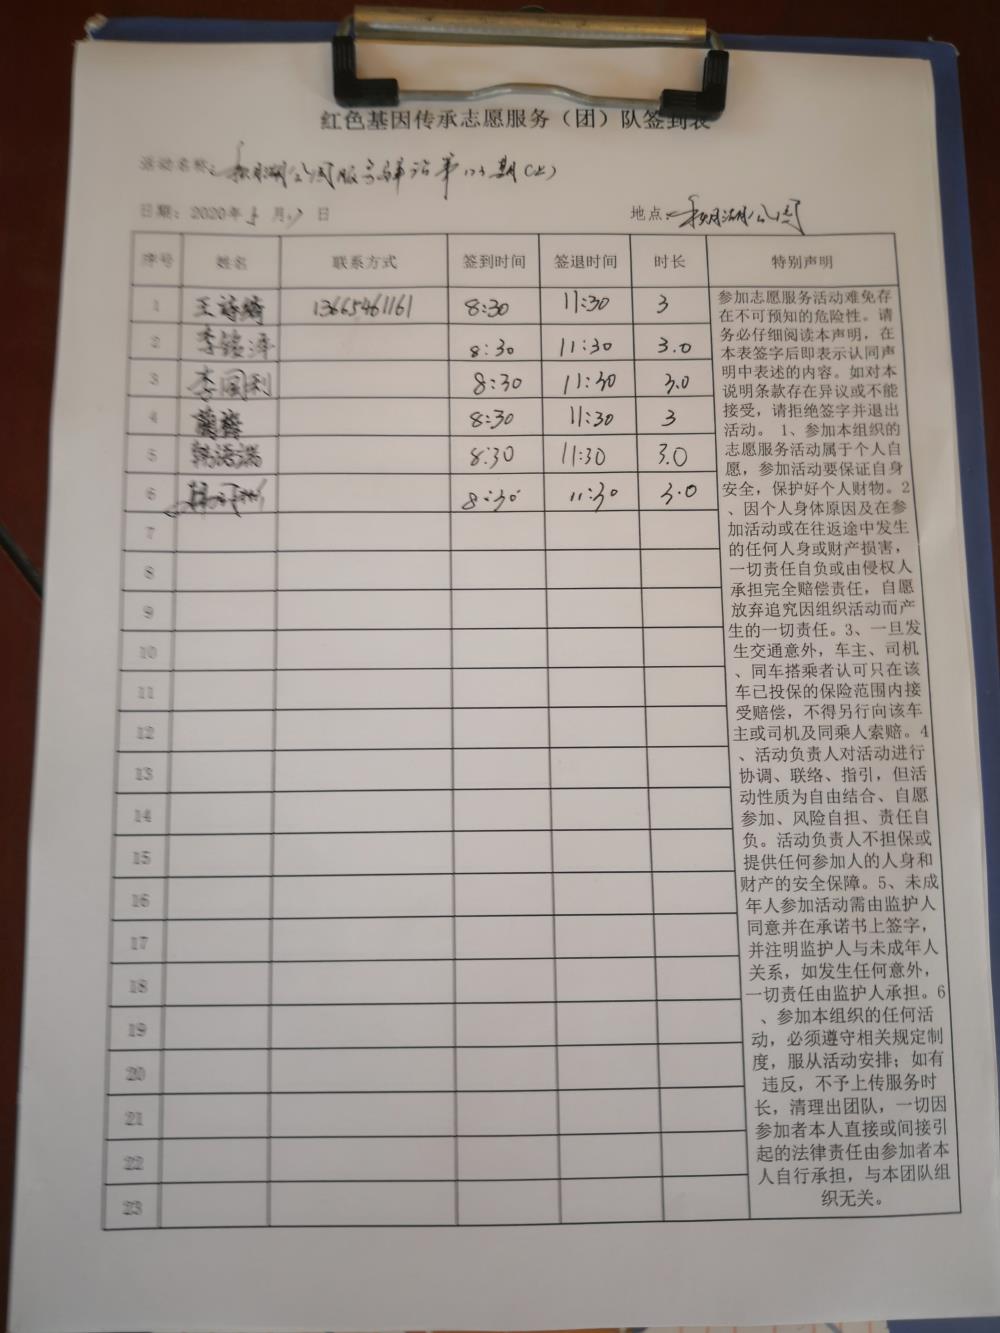 红色基因传承志愿服务（团）队签到表
活动名称：明湖公园服务驿站第123期（上）
日期：2020年 月 日 地点：明湖公园
序号 姓名 联系方式 签到时间 签退时间 时长 特别声明
1 王诗绮 13665461161 8:30 11:30 3
2 李铭泽 8:30 11:30 3.0
3 李国利 8:30 11:30 3.0
4 8:30 11:30 3
5 韩语诺 8:30 11:30 3.0
6 8:30 11:30 3.0
7
8
9
10
11
12
13
14
15
16
17
18
19
20
21
22
23
参加志愿服务活动难免存
在不可预知的危险性。请
务必仔细阅读本声明，在
本表签字后即表示认同声
明中表述的内容。如对本
说明条款存在异议或不能
接受，请拒绝签字并退出
活动。 1、参加本组织的
志愿服务活动属于个人自
愿，参加活动要保证自身
安全，保护好个人财物。2
、因个人身体原因及在参
加活动或在往返途中发生
的任何人身或财产损害，
一切责任自负或由侵权人
承担完全赔偿责任，自愿
放弃追究因组织活动而产
生的一切责任。3、一旦发
生交通意外，车主、司机
、同车搭乘者认可只在该
车已投保的保险范围内接
受赔偿，不得另行向该车
主或司机及同乘人索赔。4
、活动负责人对活动进行
协调、联络、指引，但活
动性质为自由结合、自愿
参加、风险自担、责任自
负。活动负责人不担保或
提供任何参加人的人身和
财产的安全保障。5、未成
年人参加活动需由监护人
同意并在承诺书上签字，
并注明监护人与未成年人
关系，如发生任何意外，
一切责任由监护人承担。6
、参加本组织的任何活
动，必须遵守相关规定制
度，服从活动安排；如有
违反，不予上传服务时
长，清理出团队，一切因
参加者本人直接或间接引
起的法律责任由参加者本
人自行承担，与本团队组
织无关。